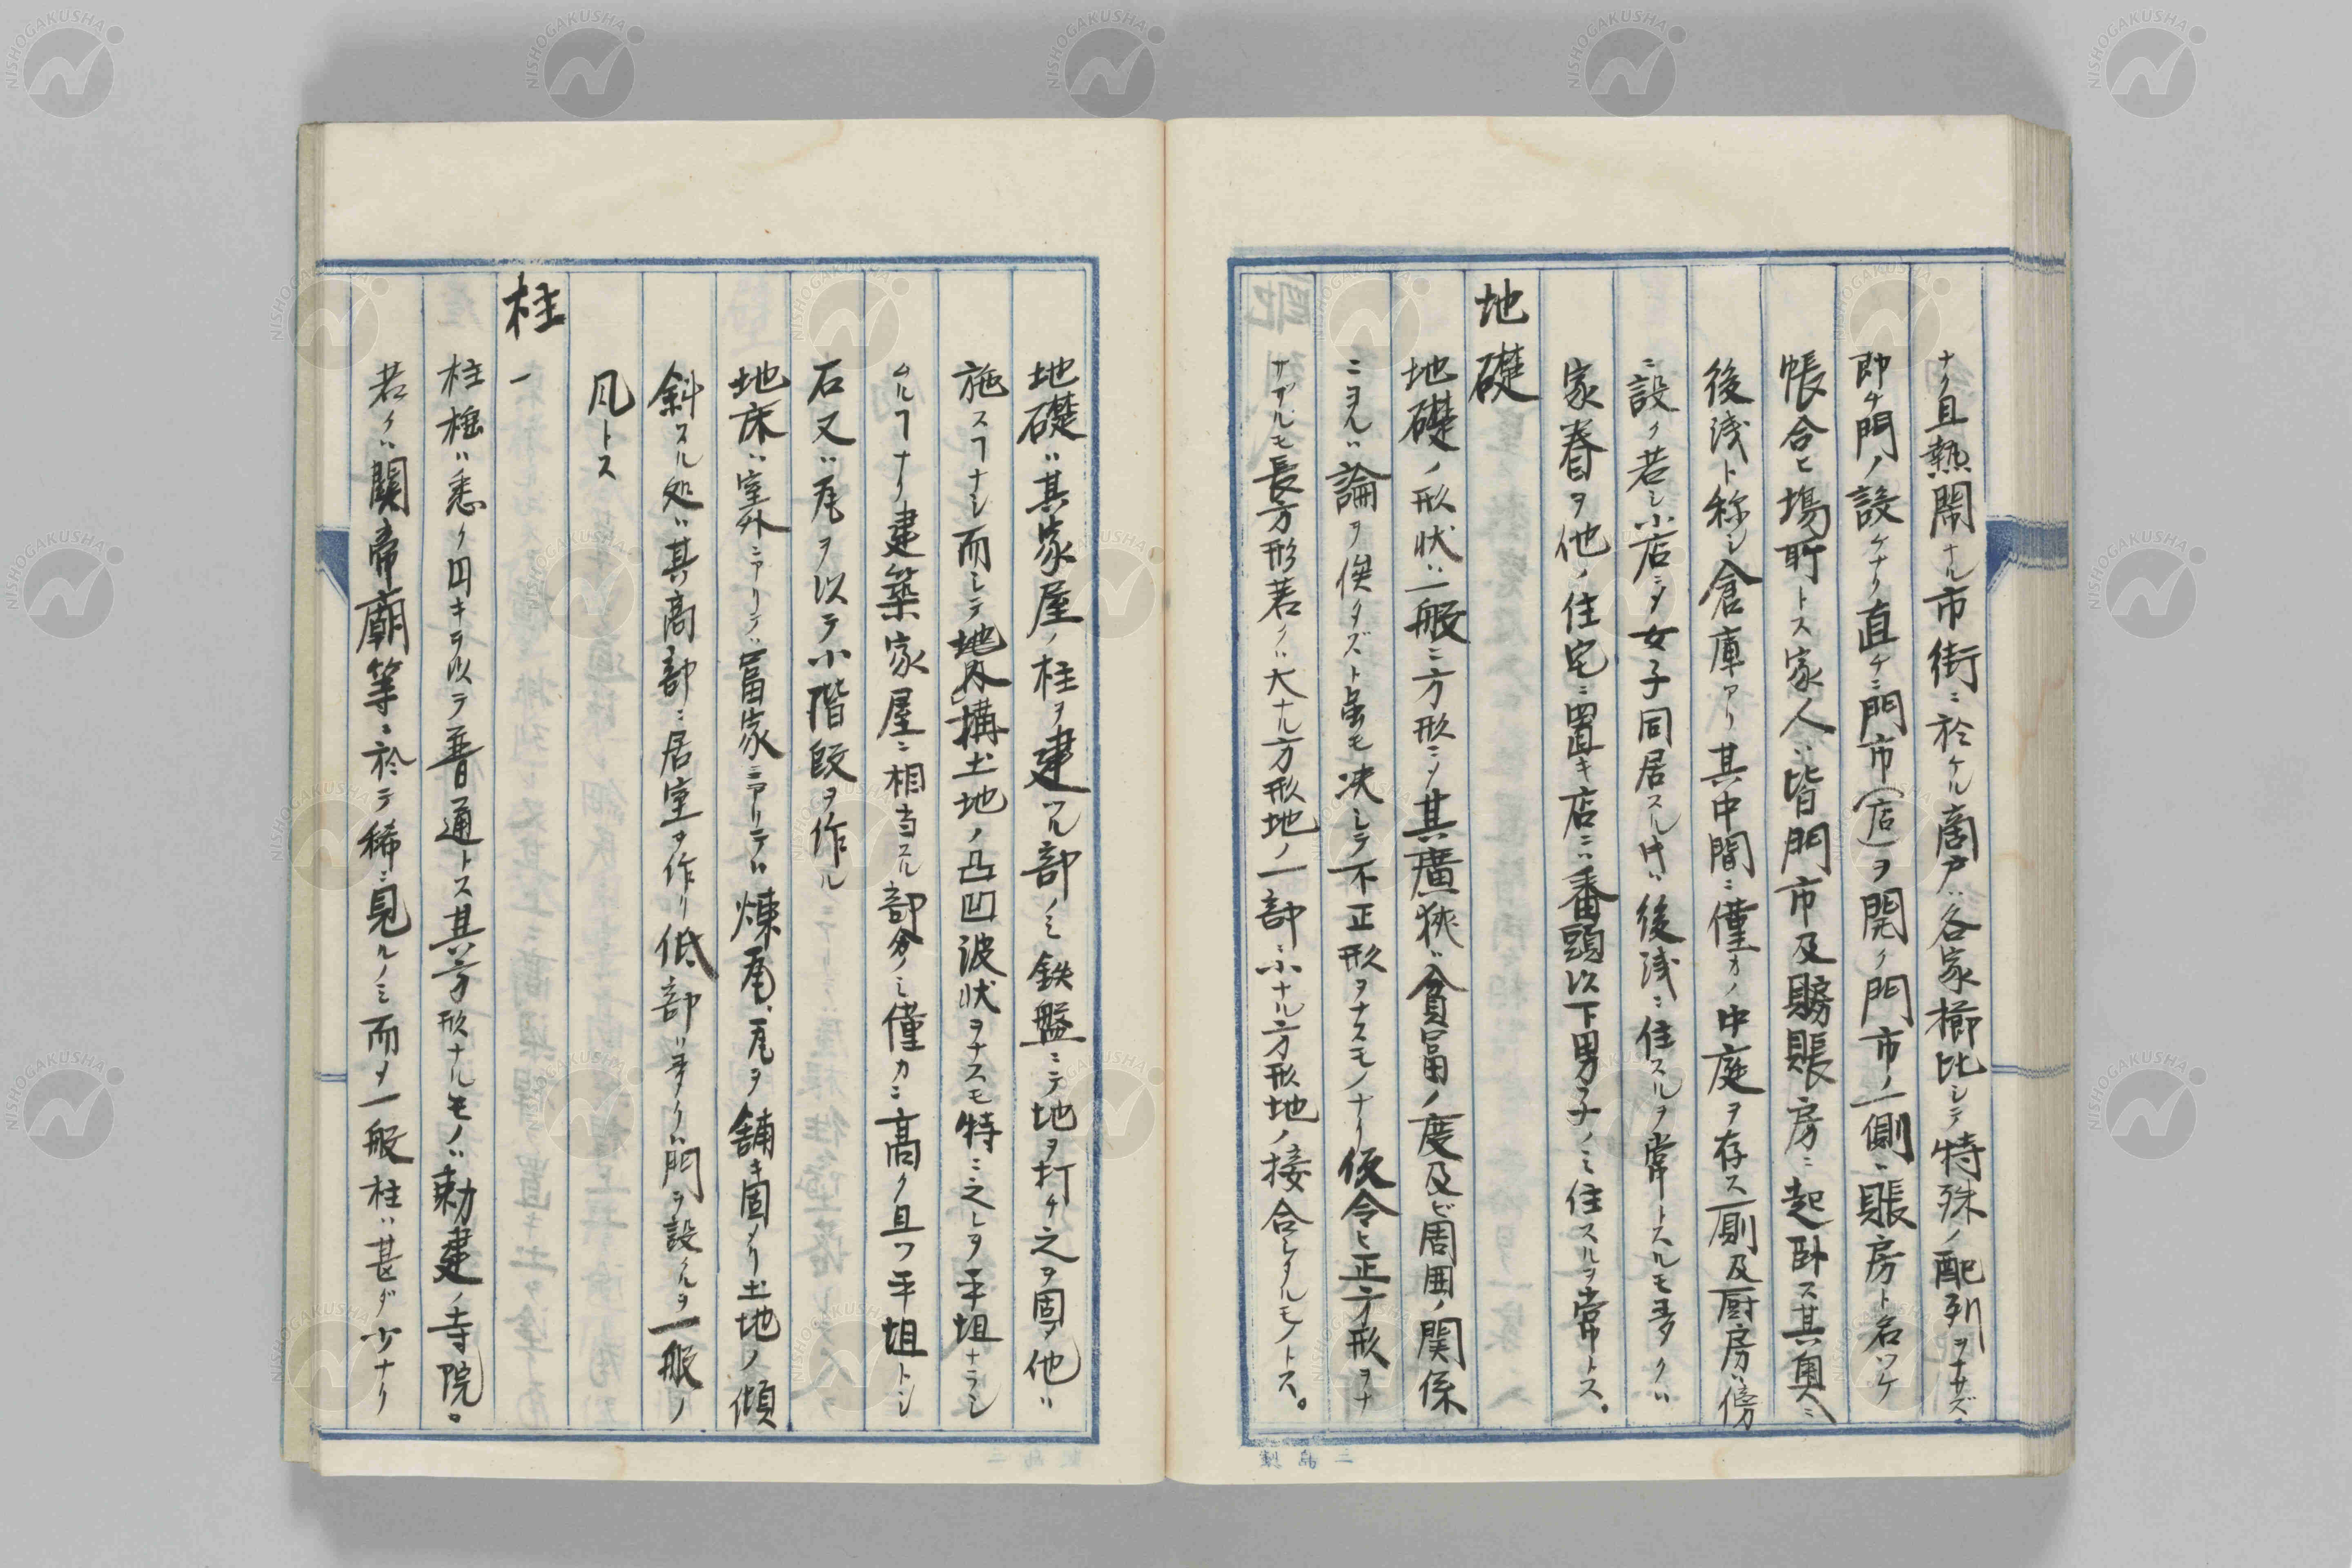 ナク且熱閙ナル市街ニ於ケル商戸ハ各家櫛比シテ特殊ノ配列ヲナサズ。
即チ門ノ設ケナク直チニ門市(店)ヲ開ク門市ノ一側ニ賬房ト名ツケ
帳合ヒ場所トス家人ハ皆門市及賬房ニ起臥ス其奥ニ
後浅ト称シ倉庫アリ其中間ニ僅カノ中庭ヲ存ス厠及厨房ハ傍
ニ設ク若シ小店ニシテ女子同居スル時ハ後浅ニ住スルヲ常トスルモ多クハ
家眷ヲ他ノ住宅ニ置キ店ニハ番頭以下男子ノミ住スルヲ常トス。
地礎
地礎ノ形状ハ一般ニ方形ニシテ其廣狹ハ貧富ノ度及ビ周囲ノ関係
ニヨルハ論ヲ俟タズト虽モ决シテ不正形ヲナスモノナク仮令ヒ正方形ヲナ
サザルモ長方形若クハ大ナル方形地ノ一部ニ小ナル方形地ノ接合シタルモノトス。
地礎ハ其家屋ノ柱ヲ建ツル部ノミ鉄盤ニテ地ヲ打チ之ヲ固メ他ハ
施スヿナシ而シテ地界構土地ノ凸凹波状ヲナスモ特ニ之レヲ平坦ナラシ
ムルヿナク建築家屋ニ相当スル部分ノミ僅カニ高ク且ツ平坦トシ
石又ハ瓦ヲ以テ小階段ヲ作ル
地床ハ室外ニアリテハ富家ニアリテハ煉瓦、瓦ヲ舗キ固メリ土地ノ傾
斜スル処ハ其高部ニ居室ヲ作リ低部ハ多クハ門ヲ設クルヲ一般ノ
風トス
柱一
柱楹ハ悉ク円キヲ以テ普通トス其方形ナルモノハ勅建ノ寺院。
若クハ關帝廟等ニ於テ稀ニ見ルノミ而ヲ一般柱ハ甚ダ少ナリ